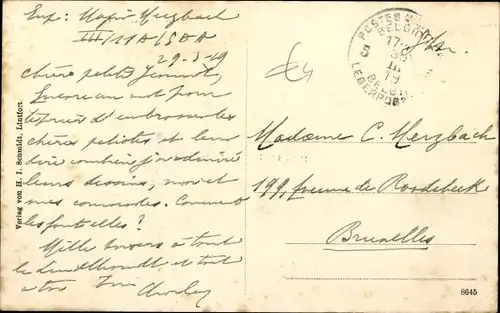 Exp: Major Merzbach
III/11A-15DA
29-3-19
Chère petite
Encore un mot pour
te prier d'embrasser les
chères petiotes et leur
dire combien j'ai admiré
leurs dessins, moi et
mes camarades. Comment
les font elles?
Mille baisers à toute
le et tout
à toi
Charley
Verlag von H. I. Schmidt, Lintfort.
POSTES MIL
BELGIQUE
17-
30
III
19
5
BELGIË
LEGERPOST
Madame C. Merzbach
199, Avenue de Roodebeek
Bruxelles
8645